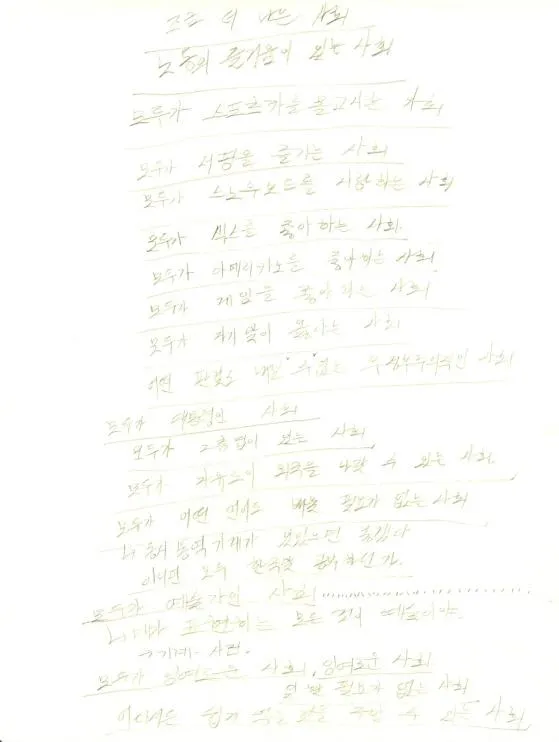 조금 더 나은 사회
노동의 즐거움이 있는 사회
모두가 스포츠카를 몰고 사는 사회
모두가 서핑을 즐기는 사회
모두가 스노우보드를 사랑하는 사회
모두가 섹스를 좋아하는 사회
모두가 아메리카노를 좋아하는 사회
모두가 게임을 좋아하는 사회
모두가 없이 사회
어떤 판결도 내릴 수 없는 무정부주의적인 사회
모두가 대통령인 사회
모두가 고층없이 보는 사회
모두가 자유로이 외국을 나갈 수 있는 사회
모두가 어떤 언어도 배울 필요가 없는 사회
동시통역기계가 있으면 즐겁다
아니면 모두 한국말
모두가 예술가인 사회
내가 표현하는 모든 것이 예술이야.
모두가 잉여로운 사회, 잉여로운 사회
일 할 필요가 없는 사회
쉽게 먹을 것을 구할 수 있는 사회